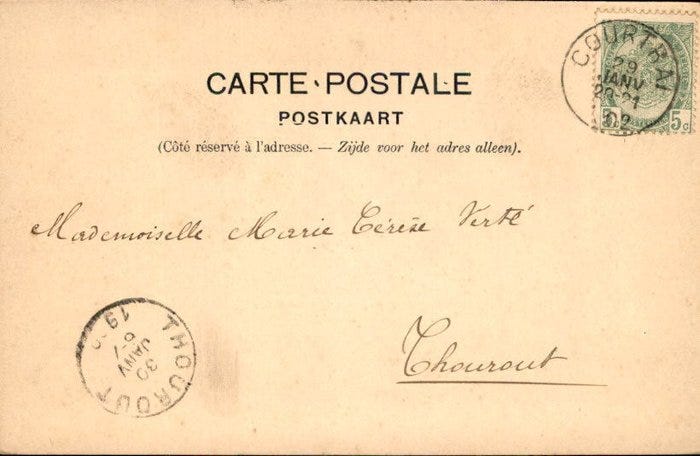 COURTRAI
29
JANV
20-21
02
5 5c
CARTE POSTALE
POSTKAART
(Côté réservé à l'adresse. — Zijde voor het adres alleen).
Mademoiselle Marie Térèse Verté
Thourout
THOUROUT
30
JANV
6-7
19